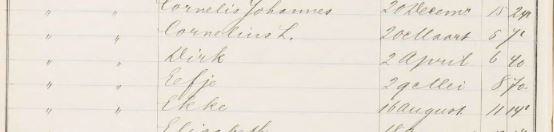 " " Cornelis Johannes 20 Decemr 15
" " Cornelius L. 20 Maart 5
" " Dirk 2 April 6 40
" " Eefje 29 Mei 8 70
" " Ekke 16 August 11
Elisabeth